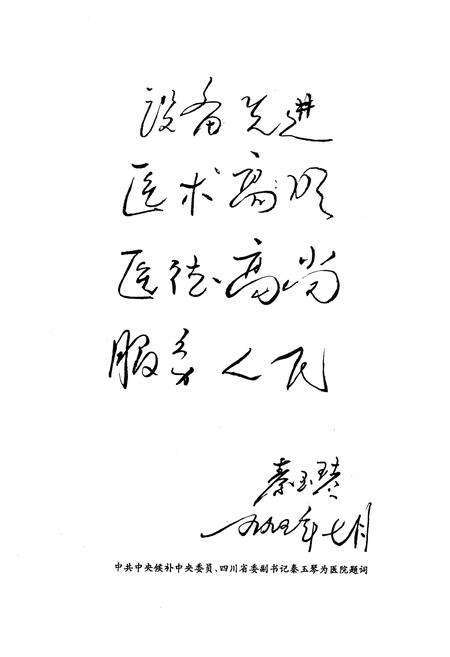 设备先进
医术高明
医德高尚
服务人民
秦玉琴
一九九五年七月
中共中央候补中央委员、四川省委副书记秦玉琴为医院题词